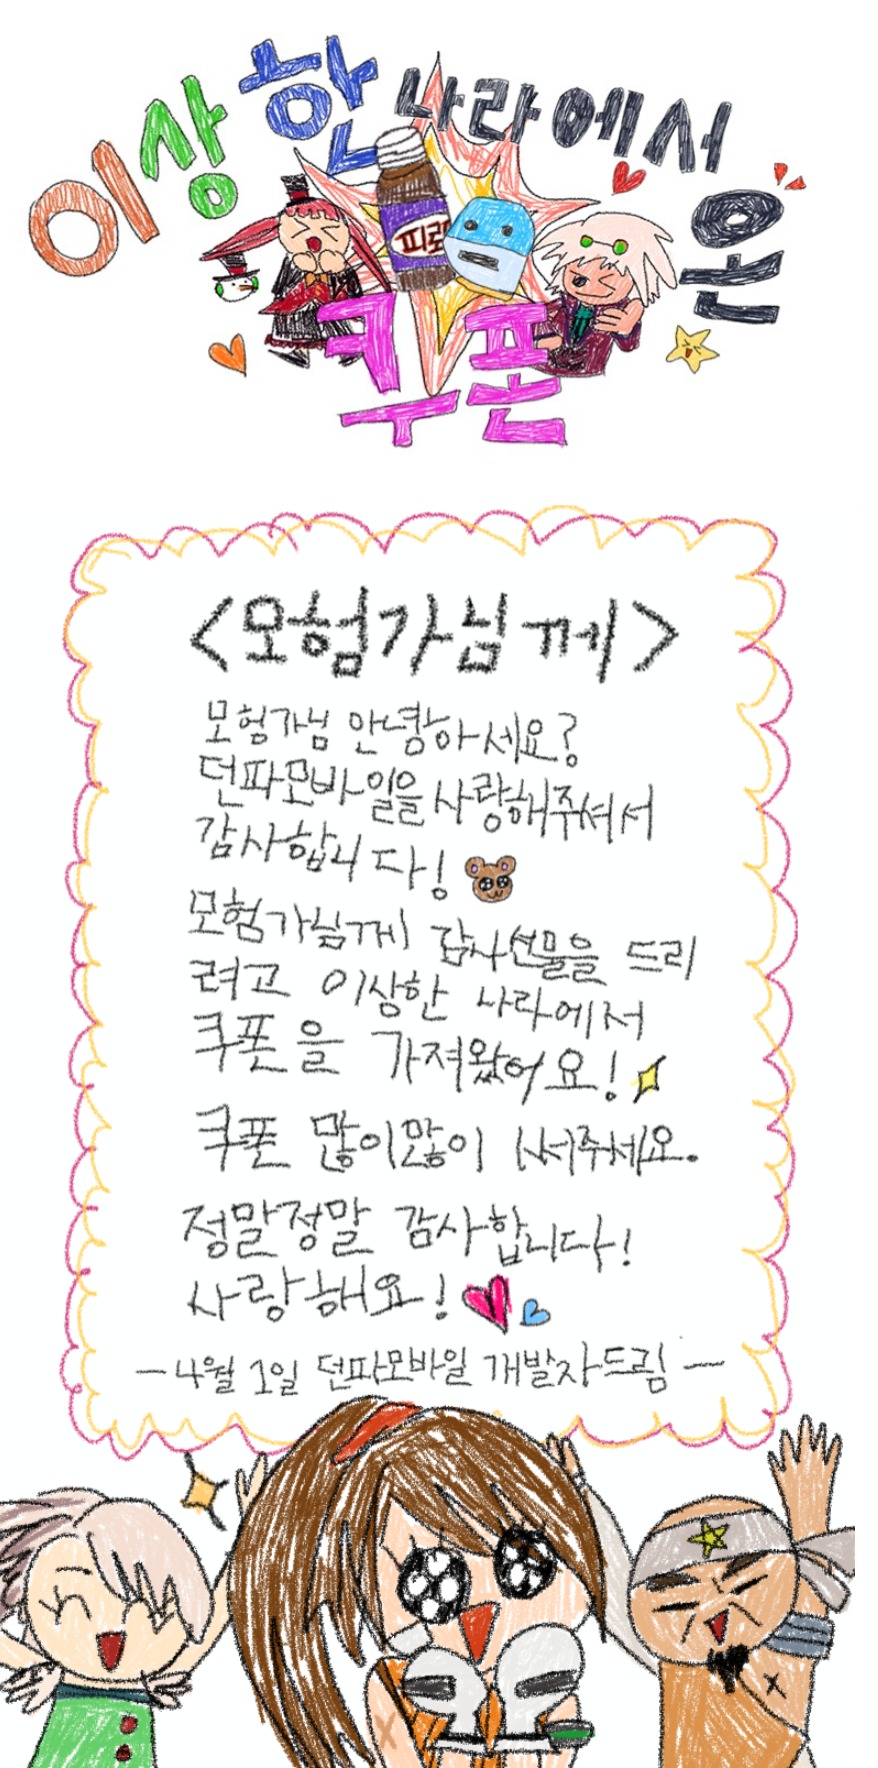 이상한 나라에서 온
피로
쿠폰
<모험가님께>
모험가님 안녕하세요?
던파모바일을 사랑해주셔서
감사합니다!
모험가님께 감사선물을 드리
려고 이상한 나라에서
쿠폰을 가져왔어요!
쿠폰 많이많이 써주세요.
정말정말 감사합니다!
사랑해요!
-4월 1일 던파모바일 개발자드림-